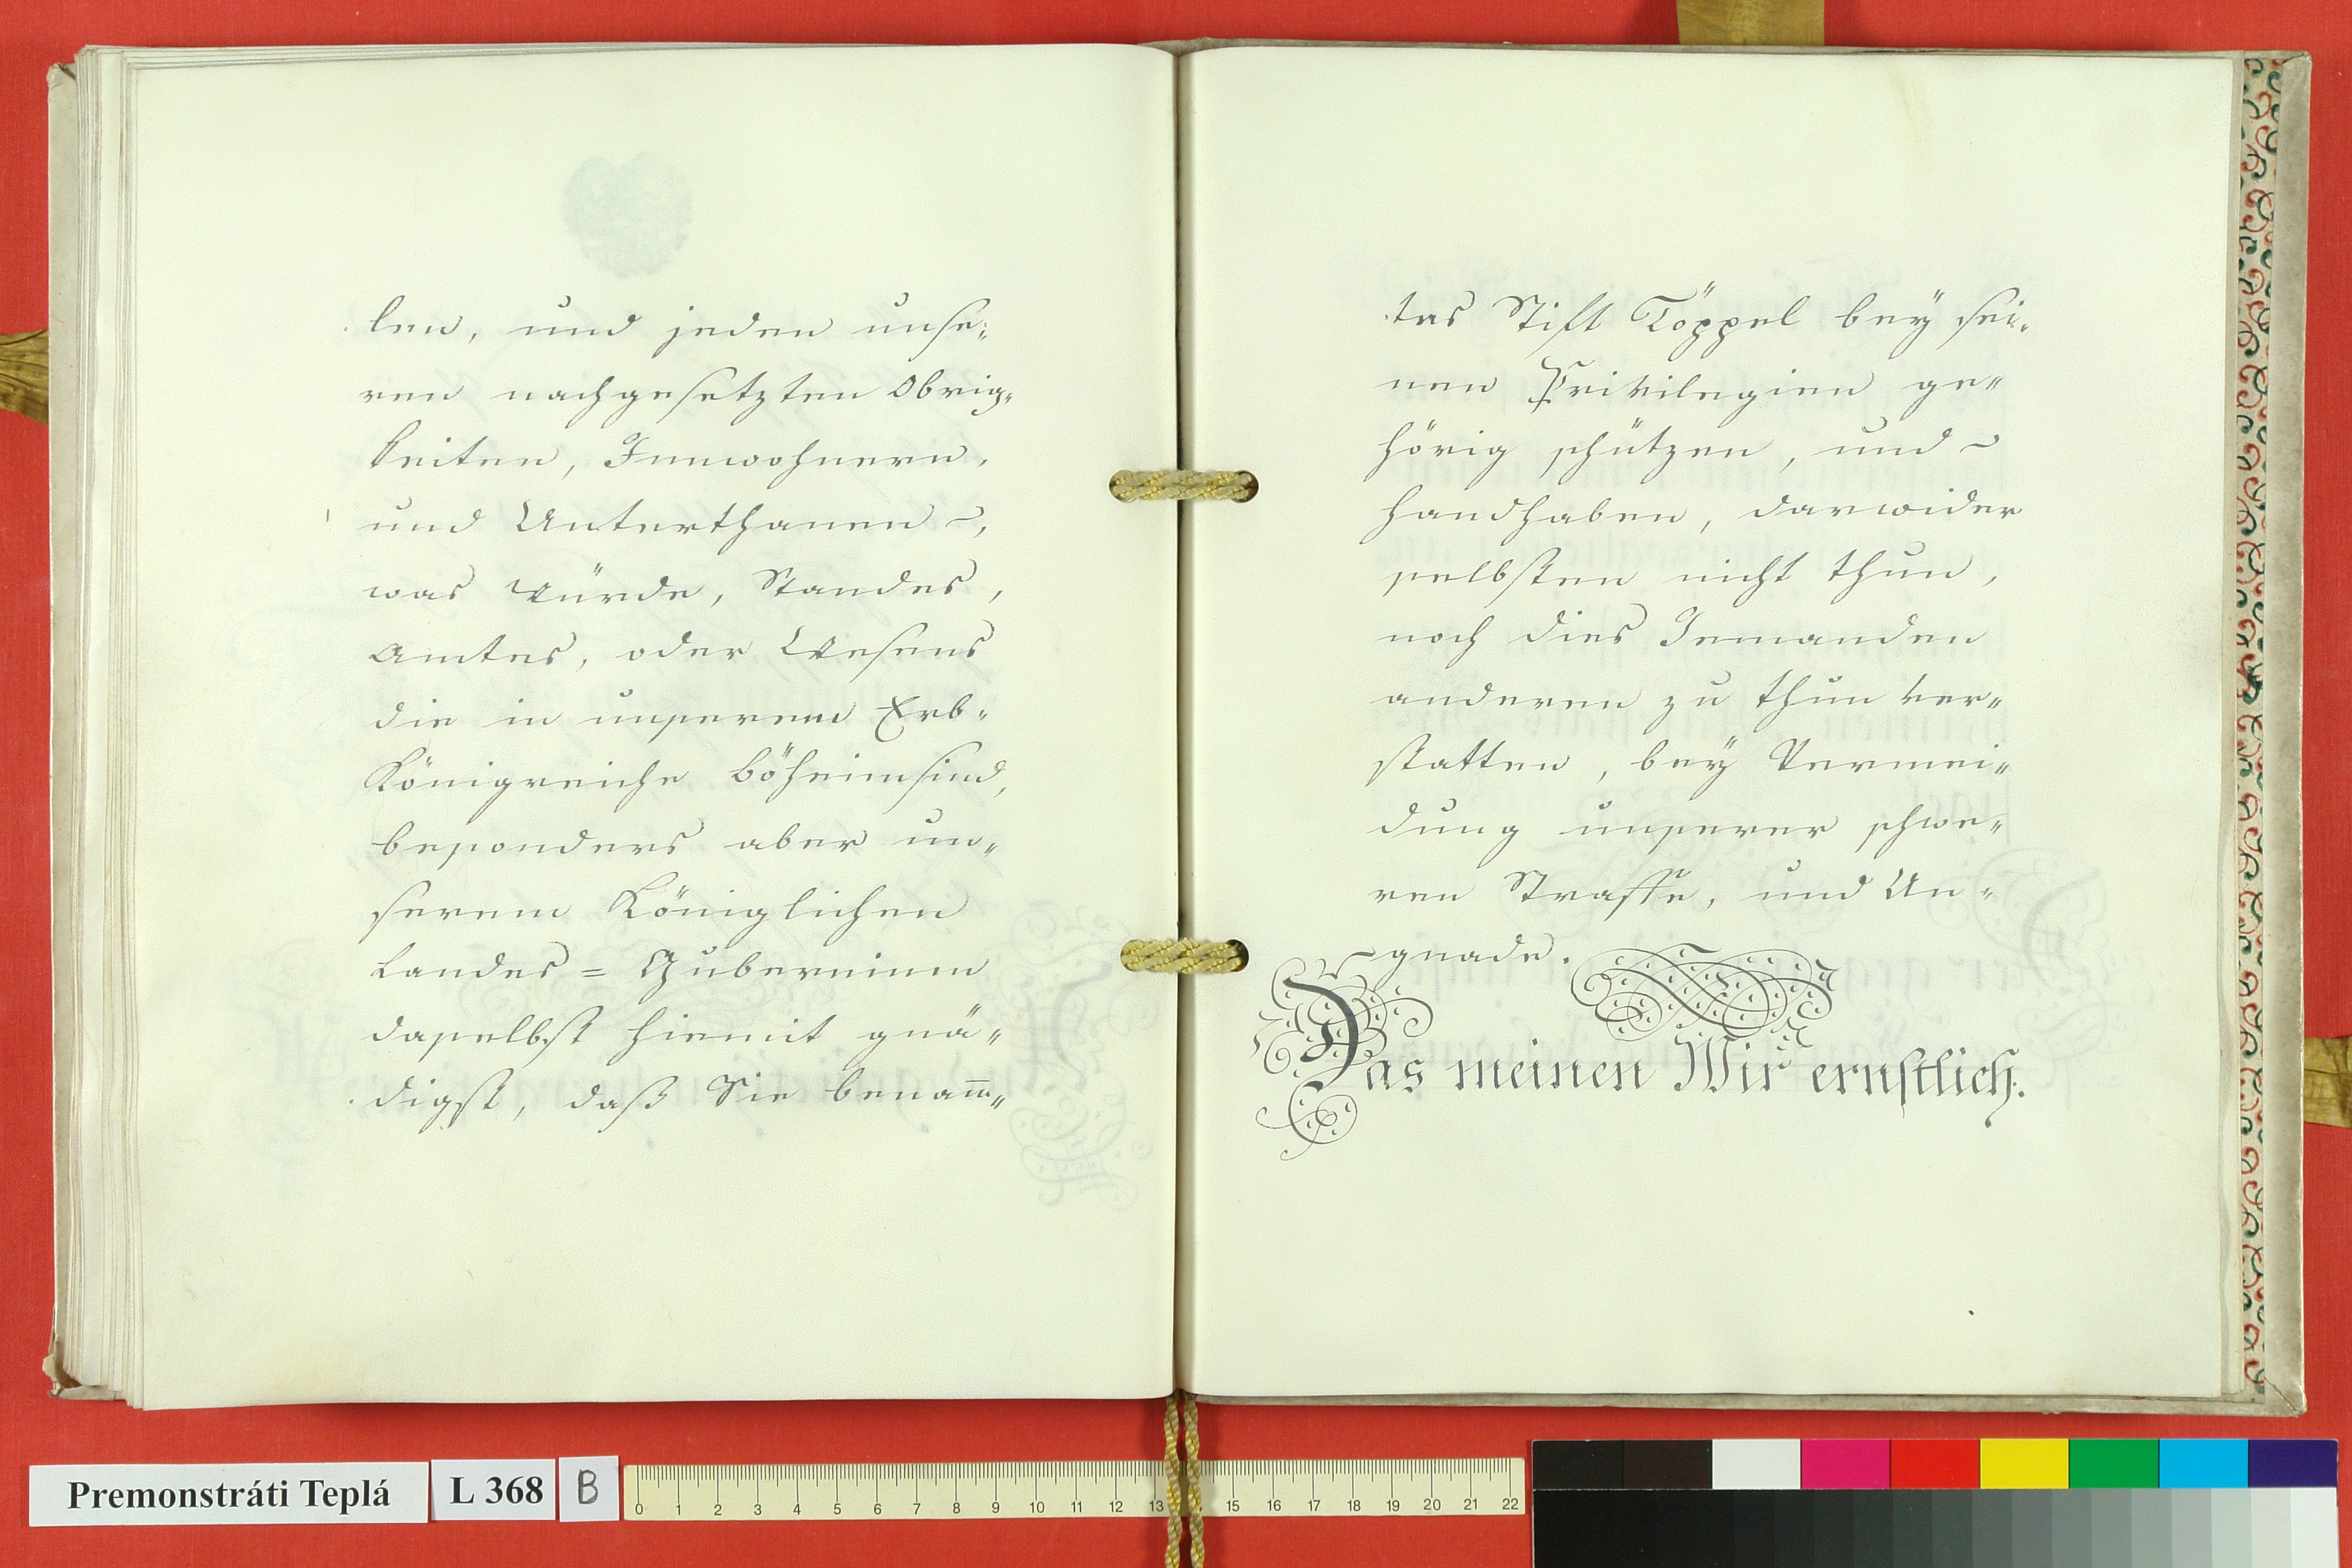 len, und jeden unse⸗
ren nachgesetzten Obrig⸗
keiten, Innwohnern,
und Unterthanen,
was Würde, Standes,
Amtes, oder Wesens
die in unserem Erb⸗
Königreiche Böheim sind,
besonders aber un⸗
serem Königlichen
Landes = Gubernium
daselbst hiemit gnä⸗
digst, daß Sie benam̅⸗
tes Stift Töppel bey sei⸗
nen Privilegien ge⸗
hörig schützen, und
handhaben, darwider
selbsten nicht thun,
noch dies Jemanden
anderen zu thun ver⸗
statten, bey Vermei⸗
dung unserer schwe⸗
ren Straffe, und Un⸗
gnade.
Das meinen Wir ernstlich.
Premonstráti Teplá L 368 B
0 1 2 3 4 5 6 7 8 9 10 11 12 13 15 16 17 18 19 20 21 22